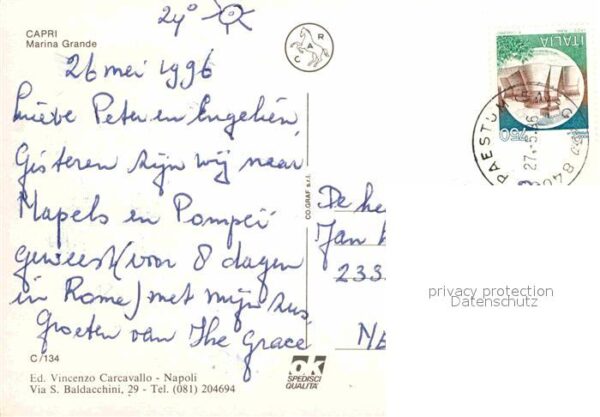 24°
CAPRI
Marina Grande
CAR
26 mei 1996
Lieve Peter en Engelien,
Gisteren zijn wij naar
Napels en Pompei
geweest (voor 8 dagen
in Rome) met mijn zus.
Groeten van The Grace
C/134
Ed. Vincenzo Carcavallo - Napoli
Via S. Baldacchini, 29 - Tel. (081) 204694
CO.GRAF s.r.l.
ok
SPEDISCI
QUALITÀ
De he
Jan
233
ITALIA
750
PAESTUM
27.5.96
privacy protection
Datenschutz